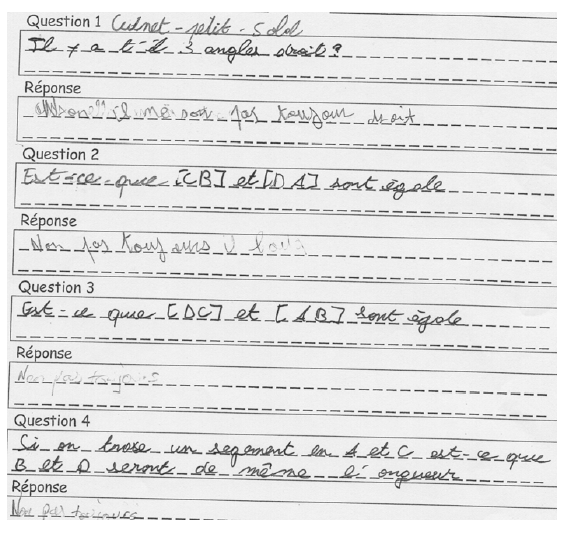 Question 1
Il y a t-il 3 angles droit ?
Réponse
Non il ne son pas toujour droit
Question 2
Est-ce-que [CB] et [DA] sont égale
Réponse
Non pas toujours il
Question 3
Est-ce que [DC] et [AB] sont égale
Réponse
Non pas toujours
Question 4
Si on trase un segement en A et C est-ce que
B et D seront de même l'ongueur
Réponse
Non pas toujours